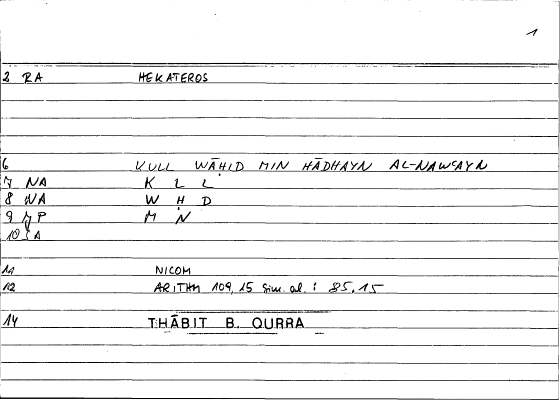 1
2 RA HEKATEROS
6 KULL WĀḤID MIN HĀDHAYN AL-NAWʿAYN
7 NA K L L
8 NA W Ḥ D
9 MP M N
10 SA
11 NICOM
12 ARITHM 109,15 sim. al.: 85.15
14 THĀBIT B. QURRA